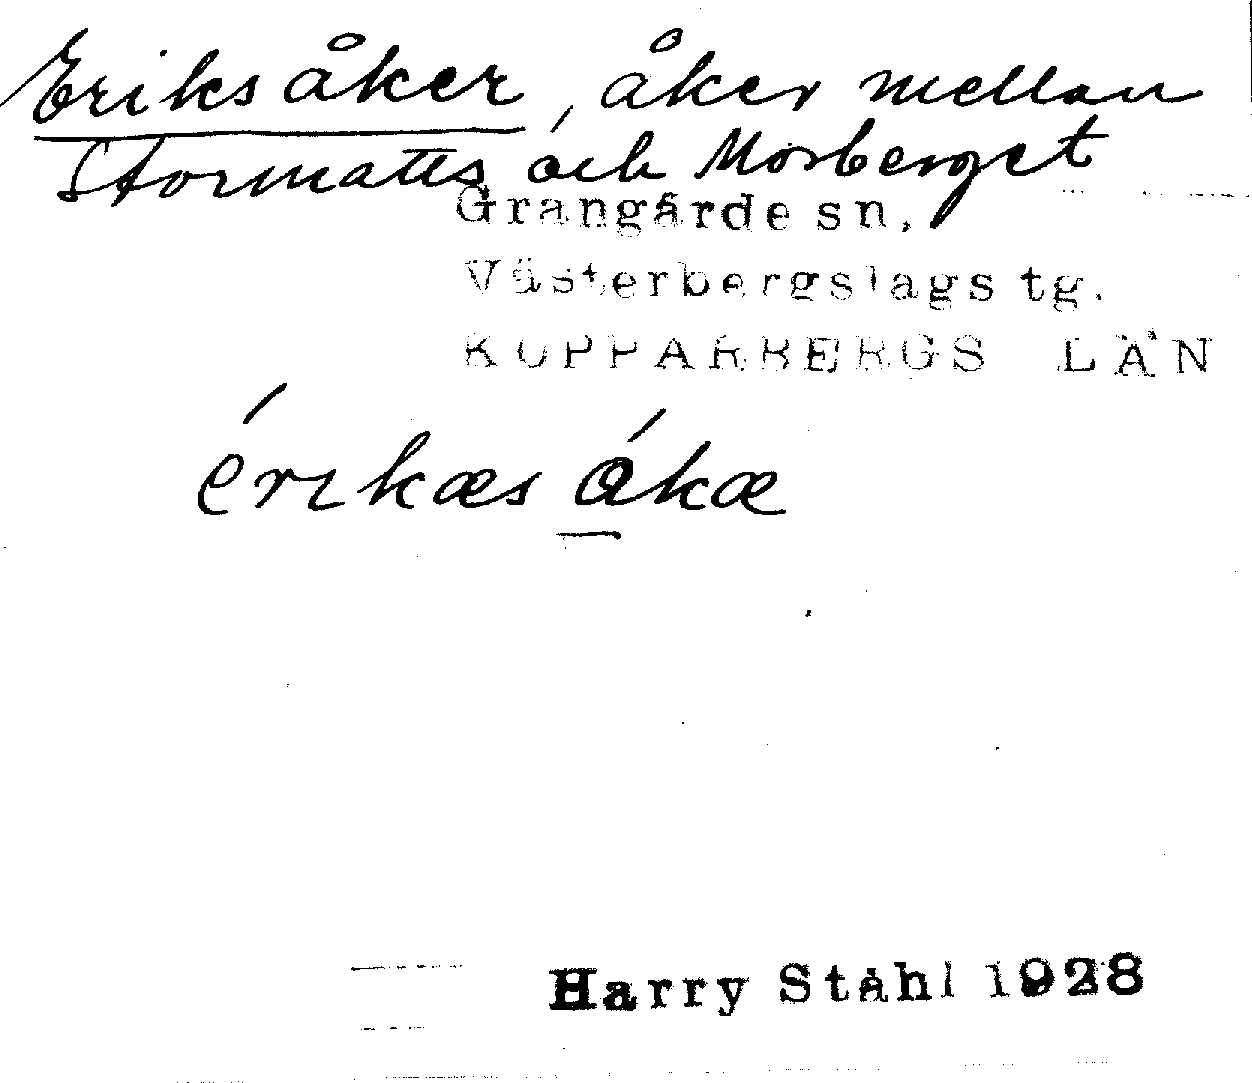 Eriksåker, åker mellan
Stormatts och Morberget
Grangärde sn.
Västerbergslags tg.
KOPPARBERGS LÄN
érıkæs ákæ
Harry Ståhl 1928